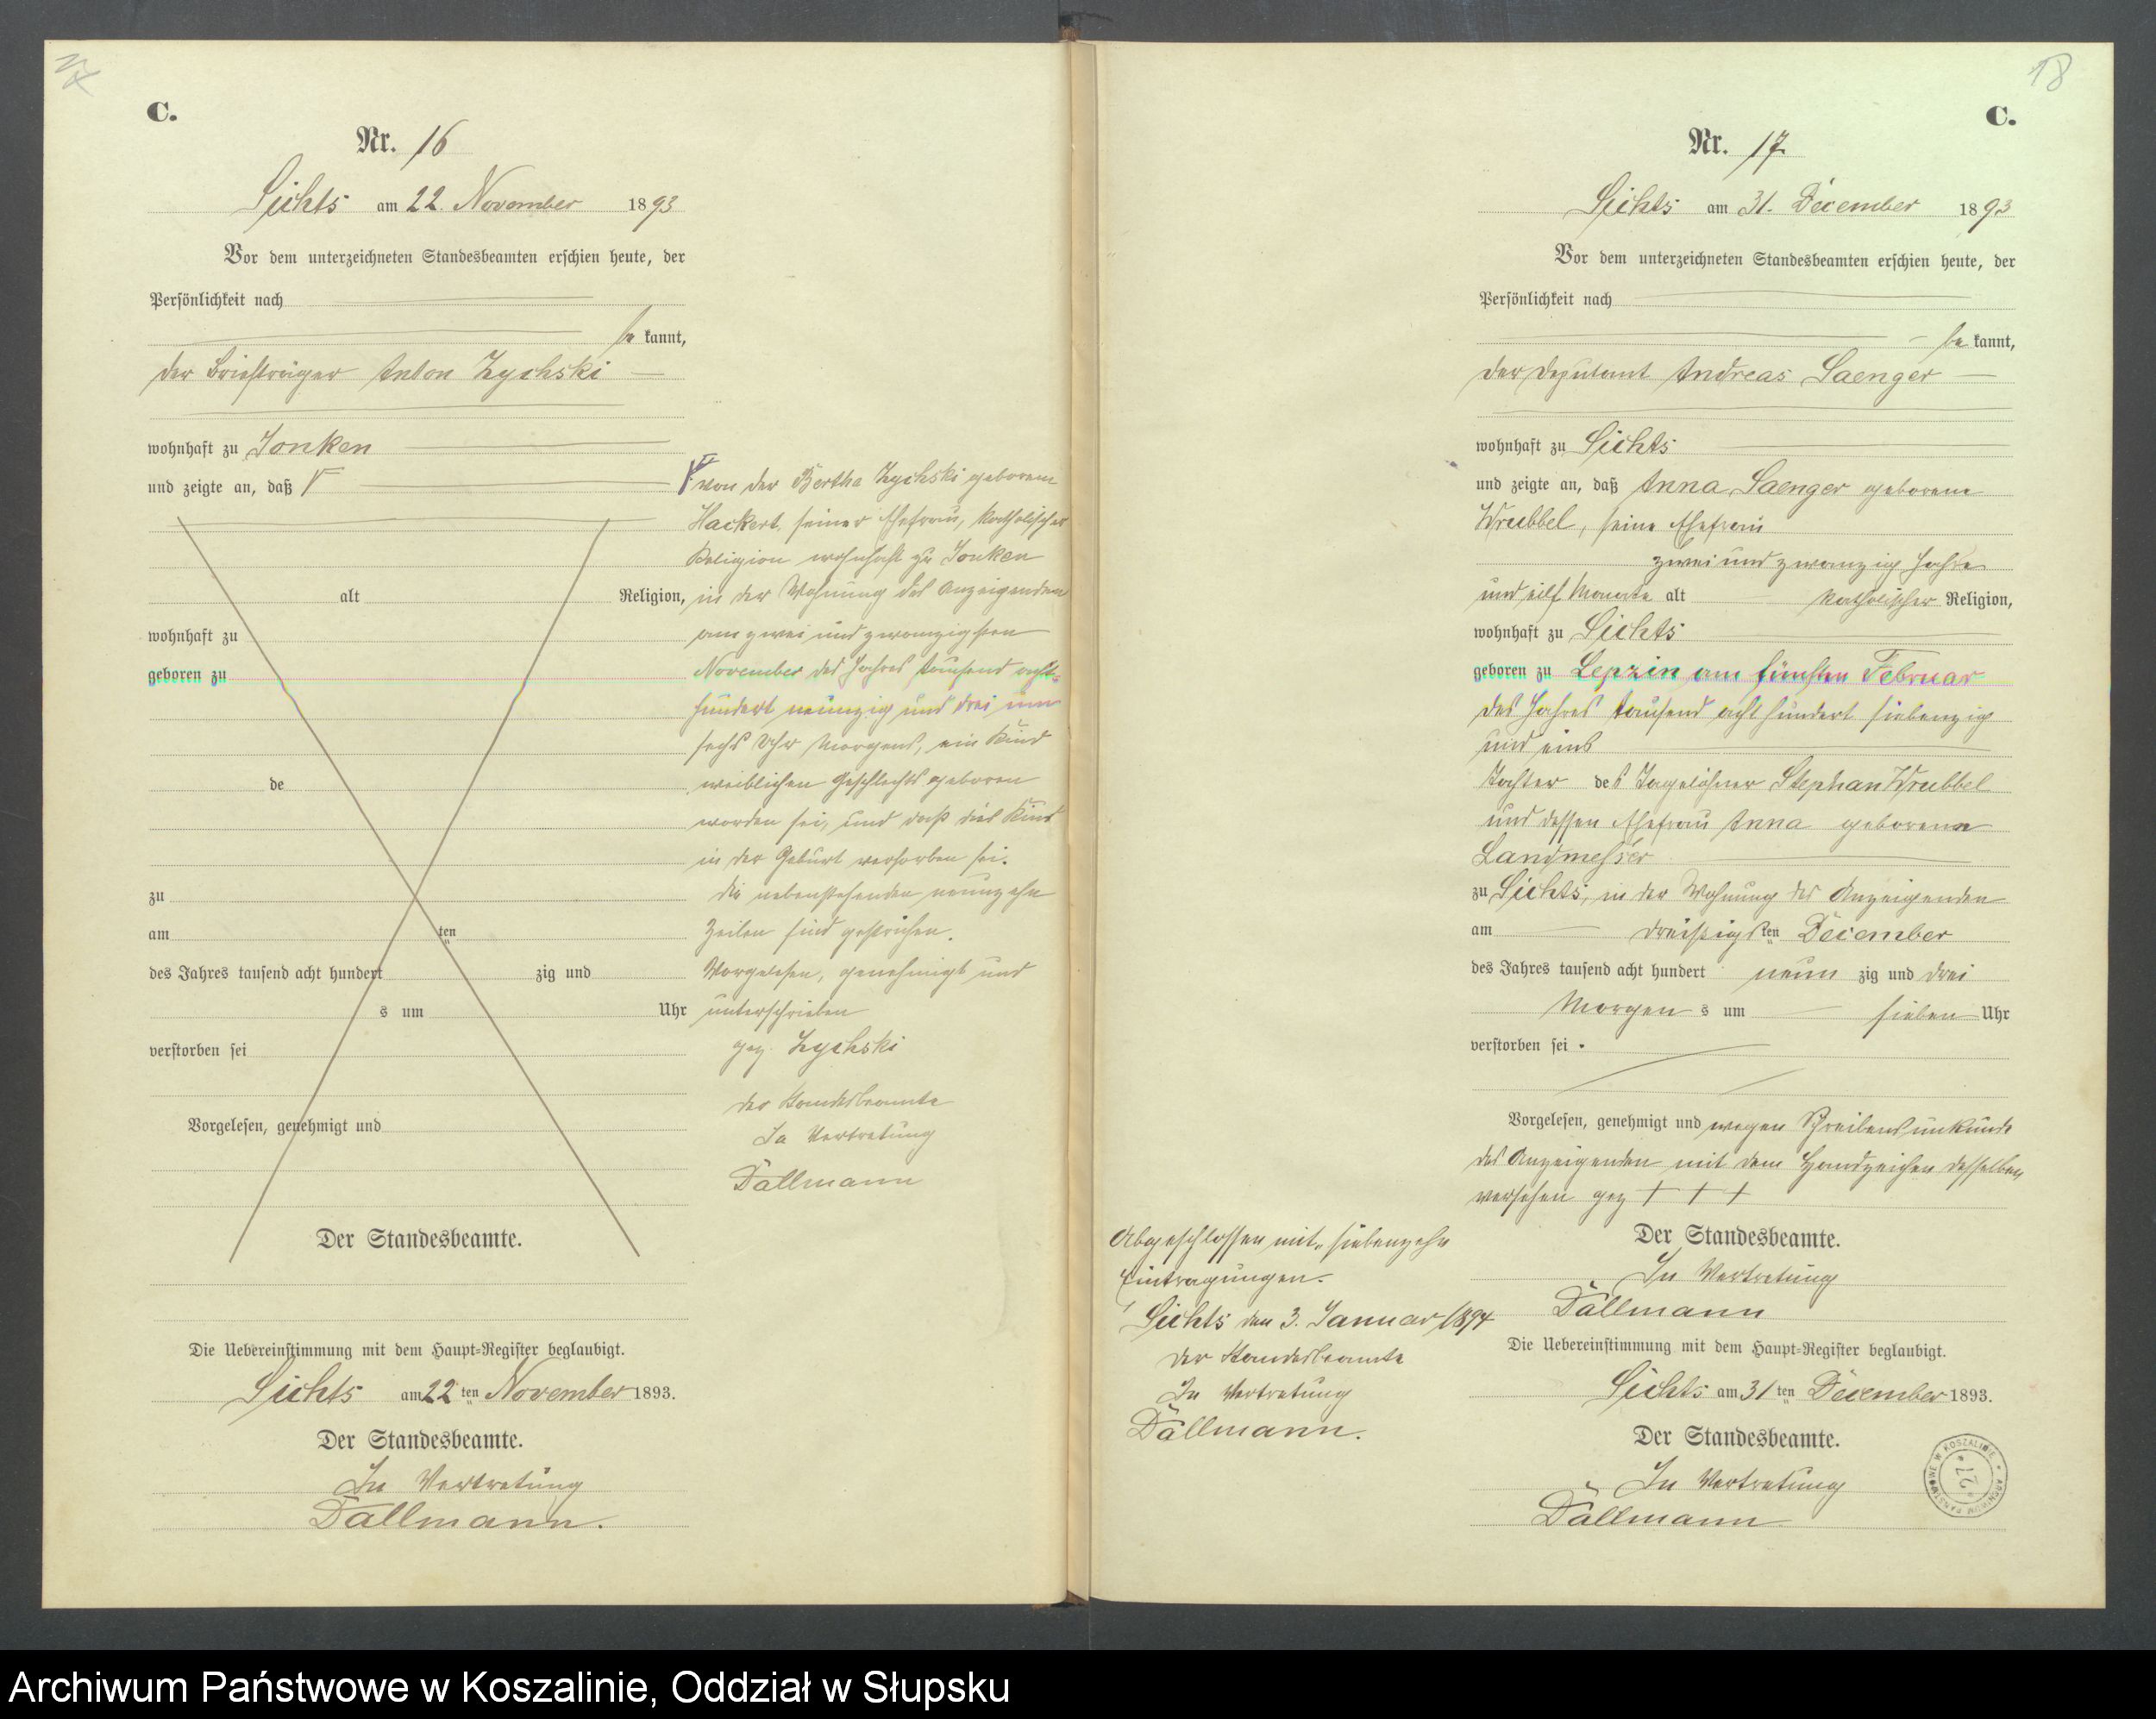 C.
Nr. 16
Lichts am 22. November 1893
Vor dem unterzeichneten Standesbeamten erschien heute, der
Persönlichkeit nach
be kannt,
der Briefträger Anton Zychski
wohnhaft zu Jonken
und zeigte an, daß
alt Religion,
wohnhaft zu
geboren zu
de
zu
am ten
des Jahres tausend acht hundert zig und
s um Uhr
verstorben sei
Vorgelesen, genehmigt und
Der Standesbeamte.
Die Uebereinstimmung mit dem Haupt-Register beglaubigt.
Lichts am 22 ten November 1893.
Der Standesbeamte.
In Vertretung
Dallmann.
von der Bertha Zychski geborene
Hackert, seiner Ehefrau, katholischer
Religion wohnhaft zu Jonken
in der Wohnung des Anzeigenden
am zwei und zwanzigsten
November des Jahres tausend acht-
hundert neunzig und drei um
sechs Uhr Morgens, ein Kind
weiblichen Geschlechts geboren
worden sei, und daß dies Kind
in der Geburt verstorben sei.
Die nebenstehenden neunzehn
Zeilen sind gestrichen.
Vorgelesen, genehmigt und
unterschrieben
gez. Zychski
der Standesbeamte
In Vertretung
Dallmann
18
C.
Nr. 17
Lichts am 31. December 1893
Vor dem unterzeichneten Standesbeamten erschien heute, der
Persönlichkeit nach
be kannt,
der Deputant Andreas Saenger
wohnhaft zu Lichts
und zeigte an, daß Anna Saenger geborene
Wrubbel, seine Ehefrau
zwei und zwanzig Jahre
und eilf Monate alt katholischer Religion,
wohnhaft zu Lichts
geboren zu Lepzin am fünften Februar
des Jahres tausend acht hundert siebenzig
und eins
Tochter des Tagelöhner Stephan Wrubbel
und dessen Ehefrau Anna geborene
Landmesser
zu Lichts, in der Wohnung des Anzeigenden
am dreißigsten December
des Jahres tausend acht hundert neun zig und drei
Morgen s um sieben Uhr
verstorben sei.
Vorgelesen, genehmigt und wegen Schreibensunkunde
des Anzeigenden mit dem Handzeichen desselben
versehen gez + + +
Der Standesbeamte.
In Vertretung
Dallmann
Die Uebereinstimmung mit dem Haupt-Register beglaubigt.
Lichts am 31 ten December 1893.
Der Standesbeamte.
In Vertretung
Dallmann
Abgeschlossen mit siebenzehn
Eintragungen.
Lichts den 3. Januar 1894
Der Standesbeamte
In Vertretung
Dallmann.
Archiwum Państwowe w Koszalinie, Oddział w Słupsku